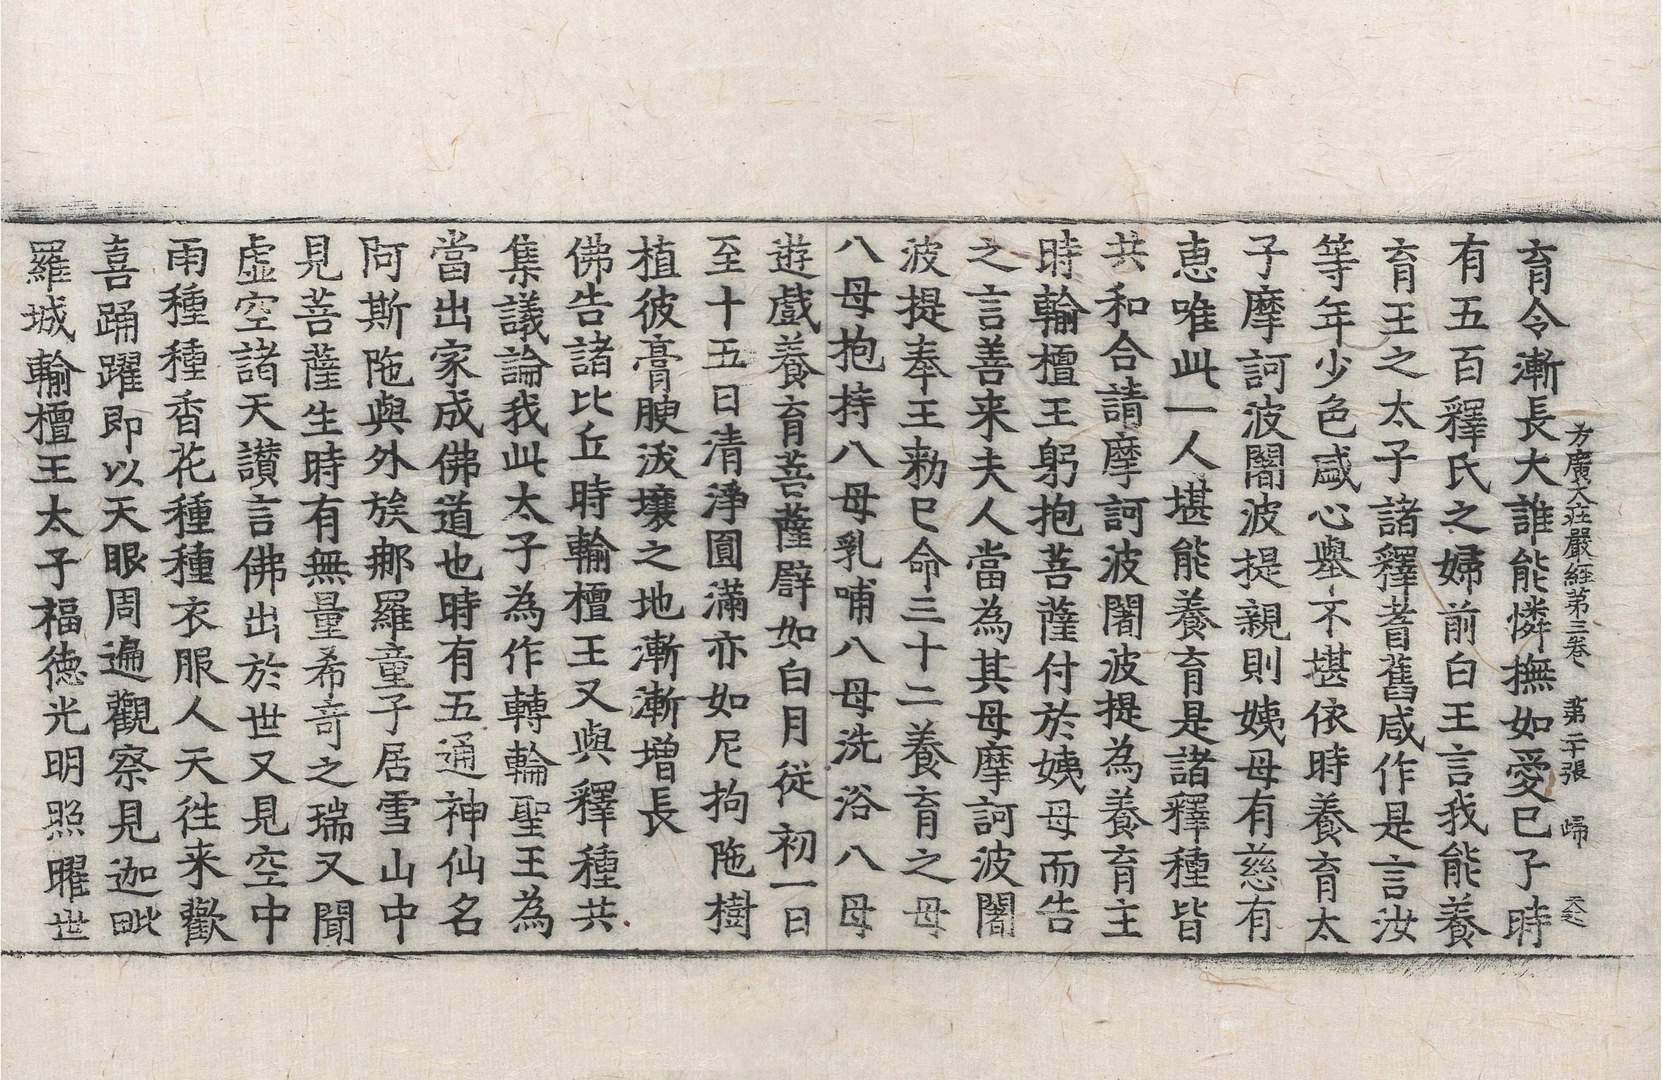 方廣大莊嚴經第三卷 第二十張 歸
育令漸長大誰能憐撫如愛己子時
有五百釋氏之婦前白王言我能養
育王之太子諸釋耆舊咸作是言汝
等年少色盛心舉不堪依時養育太
子摩訶波闍波提親則姨母有慈有
恵唯此一人堪能養育是諸釋種皆
共和合請摩訶波闍波提為養育主
時輸檀王躬抱菩薩付於姨母而告
之言善来夫人當為其母摩訶波闍
波提奉王勅已命三十二養育之母
八母抱持八母乳哺八母洗浴八母
遊戲養育菩薩譬如白月從初一日
至十五日清淨圓滿亦如尼拘陁樹
植彼膏腴沃壤之地漸漸增長
佛告諸比丘時輸檀王又與釋種共
集議論我此太子為作轉輪聖王為
當出家成佛道也時有五通神仙名
阿斯陁與外族那羅童子居雪山中
見菩薩生時有無量希奇之瑞又聞
虛空諸天讃言佛出於世又見空中
雨種種香花種種衣服人天徃来歡
喜踊躍即以天眼周遍觀察見迦毗
羅城輸檀王太子福德光明照曜世